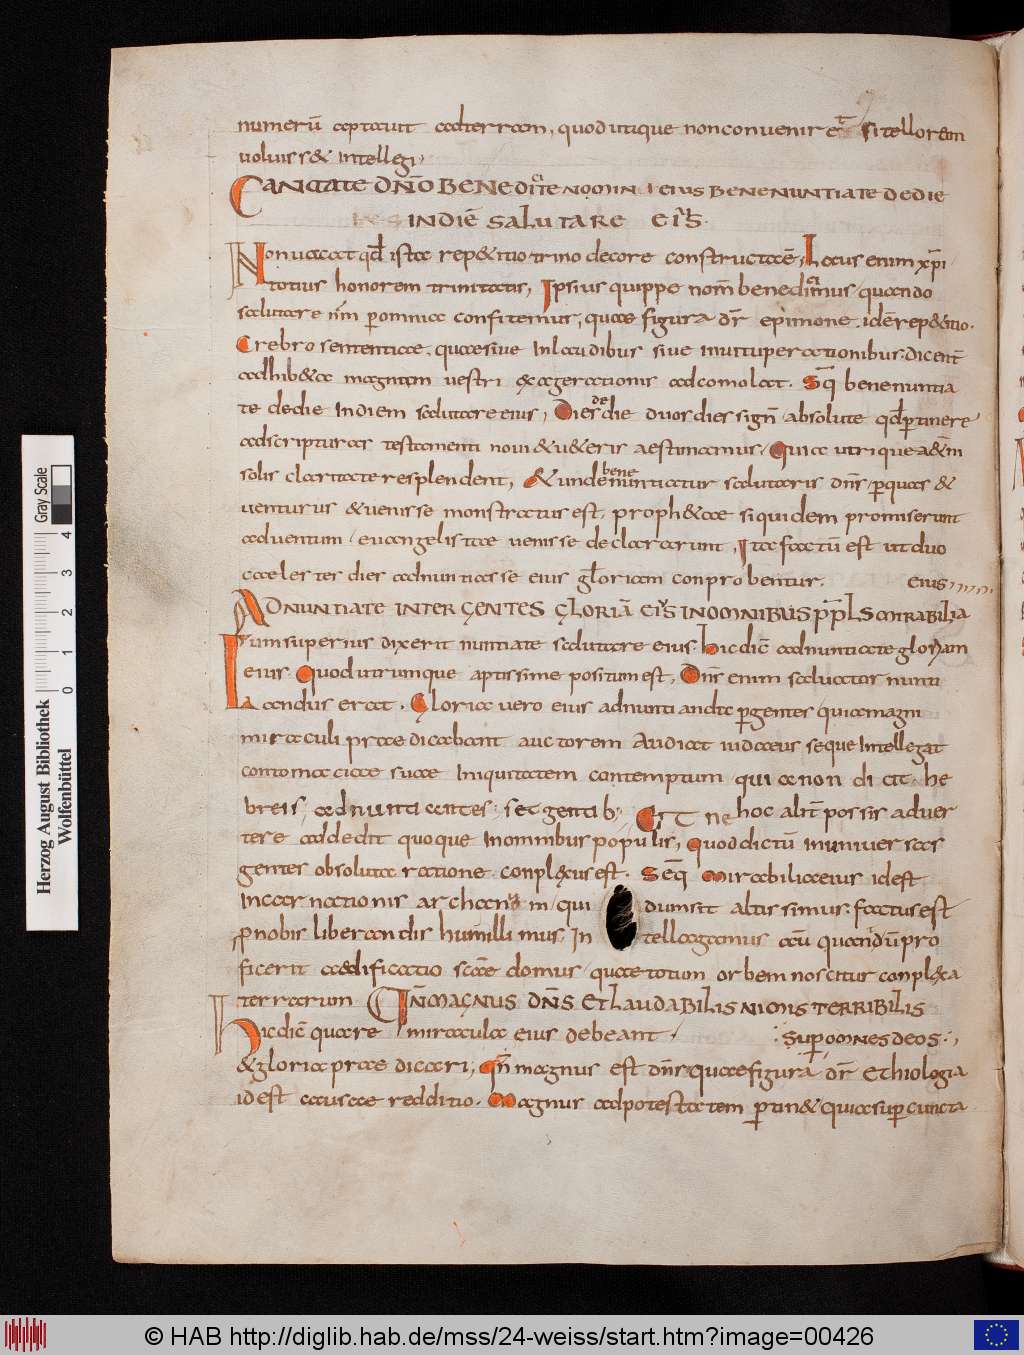 numerū aptauit adterram, quod utique non conuenir& si tellorem
uoluiss& intellegi,
CANTATE DÑO BENEDICITE NOMINI EIUS BENENUNTIATE DE DIE
IN DIĒ SALUTARE EIUS.
Non uacat qđ ista rep&itio trino decore constructa ē, Locus enim xp̄i
totius honorem trinitatis, Ipsius quippe nom̄ benedicimus, quando
salutare ip̄m per omnia confitemur, quae figura dr̄ epimone. idē rep&itio.
Crebro sententiae, quae siue inlaudibus siue inuituperationibus. dicent̄
adhib&a magnam uestri exagerationis adcomolat. Seq̄ benenuntia
te de die in diem salutare eius, Dies de die duos dies sign̄ absolute qđ pertinere
adscripturas testamenti noui & u&eris aestimamus, Quia utrique a&erni
solis claritate resplendent, & unde benenuntiatur salutaris dn̄s, per quas &
uenturus & uenisse monstratus est, proph&ae siquidem promiserunt
aduentum, euangelistae uenisse declararunt, Ita factū est ut duo
caelestes dies adnuntiasse eius gloriam conprobentur. eius
ADNUNTIATE INTER GENTES GLORIĀ EIUS IN OMNIBUS PPLS MIRABILIA
Cum superius dixerit nuntiate salutare eius. hic dic̄ adnuntiate gloriam
eius. Quod utrumque aptissime positum est, Dn̄s enim saluator nunti
andus erat. Gloria uero eius adnuntianda per gentes, quia magni
miraculi praedicabant auctorem Audiat iudaeus seque intellegat
contomaciae suae iniquitatem contemptum quia non dicit he
breis, adnuntiantes, set gentib; Et ne hoc alit̄ possis aduer
tere addedit quoque in omnibus populis, Quod dictū in uniuersas
gentes absoluta ratione conplexus est. Seq̄ Mirabilia eius id est
incarnationis archana in qui dum sit altissimus. factus est
pro nobis liberandis humillimus, In tellagamus acū quand dū pro
ficerit aedificatio scāe domus, quae totum orbem noscitur conplexa
terrarum QN̄M MAGNUS DN̄S ET LAUDABILIS NIMIS TERRIBILIS
Hic dic̄ quare miracula eius debeant : SUPER OMNES DEOS :,
& gloria praedicari, Qn̄ magnus est dn̄s. quae figura dr̄ ethiologia
id est causae redditio. Magnus ad potestatem pertin& quia super cuncta
Herzog August Bibliothek
Wolfenbüttel
0 1 2 3 4
Gray Scale
© HAB http://diglib.hab.de/mss/24-weiss/start.htm?image=00426